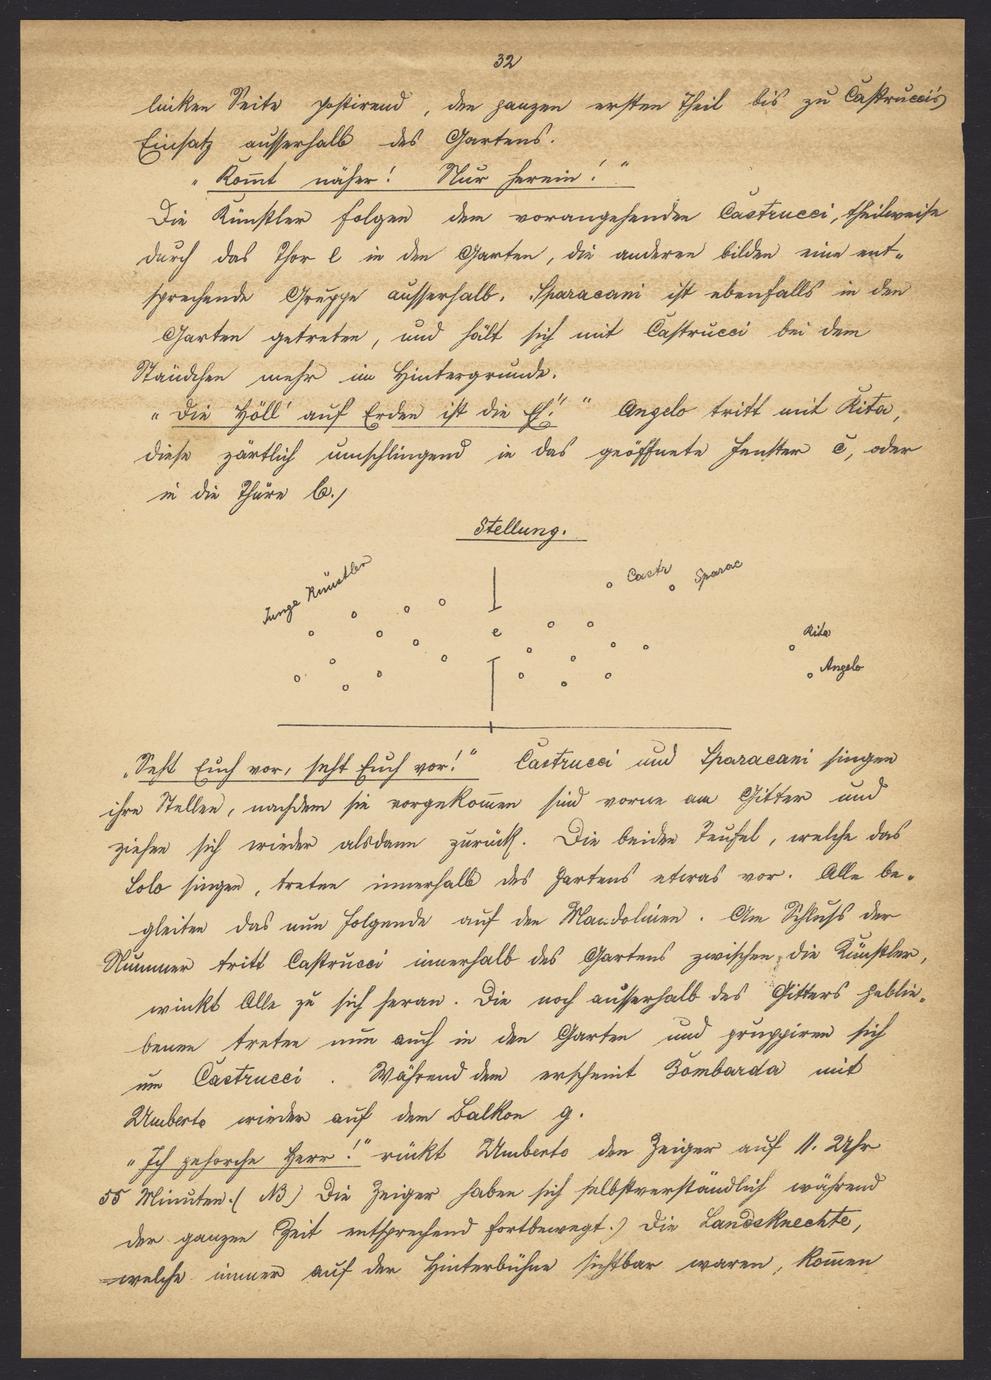 32
linken Seite postirend, den ganzen ersten Theil bis zu Castrucci's
Einsatz ausserhalb des Gartens.
„Kom̄t näher! Nur herein!“
Die Künstler folgen dem vorangehenden Castrucci, theilweise
durch das Thor e in den Garten, die anderen bilden eine ent-
sprechende Gruppe ausserhalb. Sparacani ist ebenfalls in den
Garten getreten, und hält sich mit Castrucci bei dem
Ständchen mehr im Hintergrunde.
„Die Höll' auf Erden ist die Eh'!“ Angelo tritt mit Rita,
diese zärtlich umschlingend in das geöffnete Fenster c, oder
in die Thüre b./
Stellung.
Junge Künstler
Castr Sparac
e
Rita
Angelo
„Seht Euch vor, seht Euch vor!“ Castrucci und Sparacani singen
ihre Stellen, nachdem sie vorgekom̄en sind vorne am Gitter und
ziehen sich wieder alsdann zurück. Die beiden Teufel, welche das
Solo singen, treten innerhalb des Gartens etwas vor. Alle be-
gleiten das nun folgende auf den Mandolinen. Am Schluss der
Nummer tritt Castrucci innerhalb des Gartens zwischen die Künstler,
winkt Alle zu sich heran. Die noch ausserhalb des Gitters geblie-
benen treten nun auch in den Garten und gruppiren sich
um Castrucci. Während dem erscheint Bombarda mit
Umberto wieder auf dem Balkon g.
„Ich gehorche Herr!“ rückt Umberto den Zeiger auf 11. Uhr
55 Minuten. (NB) Die Zeiger haben sich selbstverständlich während
der ganzen Zeit entsprechend fortbewegt.) Die Landsknechte,
welche immer auf der Hinterbühne sichtbar waren, kom̄en